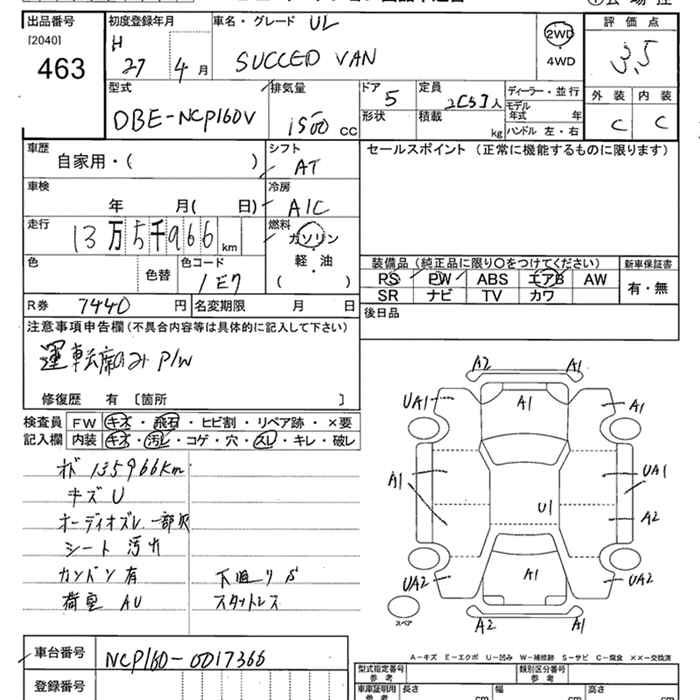 出品番号
[2040]
463
初度登録年月
H
27 4 月
車名・グレード UL
SUCCEED VAN
2WD
・
4WD
評価点
3.5
外装 内装
C C
型式
DBE-NCP160V
排気量
1500 cc
ドア 5
形状
定員
2(5)人
積載
kg
ディーラー・並行
モデル
年式 年
ハンドル 左・右
車歴
自家用・( )
シフト
AT
車検
年 月( 日)
冷房
A/C
走行
13万5千966km
燃料
ガソリン
・
軽・油
( )
色
色替
色コード
1E7
R券 7440 円
名変期限 月 日
セールスポイント (正常に機能するものに限ります)
装備品 (純正品に限り○をつけてください)
PS PW ABS エアB AW
SR ナビ TV カワ
新車保証書
有・無
後日品
注意事項申告欄(不具合内容等は具体的に記入して下さい)
運転席のみ P/W
修復歴 有 〔箇所 〕
検査員
記入欄
FW キズ・飛石・ヒビ割・リペア跡・×要
内装 キズ・汚レ・コゲ・穴・スレ・キレ・破レ
135966km
キズU
オーディオズレ 一部欠
シート 汚れ
カンバン有
荷室 AU
下廻りS
スタットレス
A2 A1
UA1 A1 A1
A1 UA1
U1 A2
UA2 A1 UA2
A2 A1
スペア
A-キズ E-エクボ U-凹み W-補修跡 S-サビ C-腐食 ××-交換済
車台番号
NCP160-0017366
登録番号
型式指定番号
参考
類別区分番号
参考
車庫証明用
参考
長さ
cm
幅
cm
高さ
cm